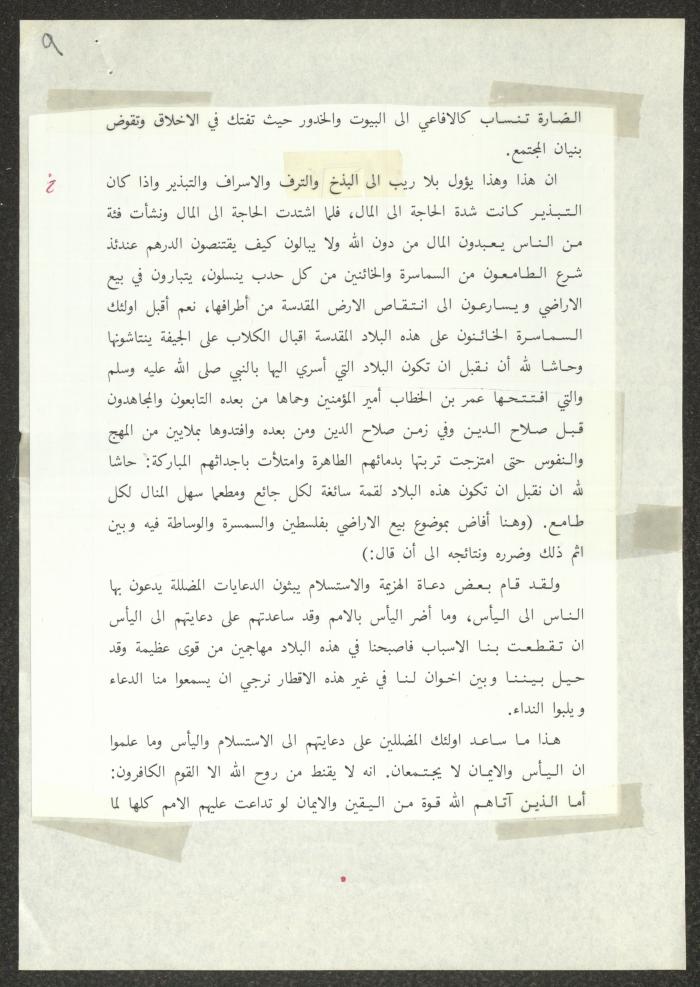 ٩
الضارة تنساب كالافاعي الى البيوت والخدور حيث تفتك في الاخلاق وتقوض
بنيان المجتمع.
ان هذا وهذا يؤول بلا ريب الى البذخ والترف والاسراف والتبذير واذا كان
التبذير كانت شدة الحاجة الى المال، فلما اشتدت الحاجة الى المال ونشأت فئة
من الناس يعبدون المال من دون الله ولا يبالون كيف يقتنصون الدرهم عندئذ
شرع الطامعون من السماسرة والخائنين من كل حدب ينسلون، يتبارون في بيع
الاراضي ويسارعون الى انتقاص الارض المقدسة من أطرافها، نعم أقبل اولئك
السماسرة الخائنون على هذه البلاد المقدسة اقبال الكلاب على الجيفة ينتاشونها
وحاشا لله أن نقبل ان تكون البلاد التي أسري اليها بالنبي صلى الله عليه وسلم
والتي افتتحها عمر بن الخطاب أمير المؤمنين وحماها من بعده التابعون والمجاهدون
قبل صلاح الدين وفي زمن صلاح الدين ومن بعده وافتدوها بملايين من المهج
والنفوس حتى امتزجت تربتها بدمائهم الطاهرة وامتلأت باجداثهم المباركة: حاشا
لله ان نقبل ان تكون هذه البلاد لقمة سائغة لكل جائع ومطعما سهل المنال لكل
طامع. (وهنا أفاض بموضوع بيع الاراضي بفلسطين والسمسرة والوساطة فيه وبين
اثم ذلك وضرره ونتائجه الى أن قال:)
ولقد قام بعض دعاة الهزيمة والاستسلام يبثون الدعايات المضللة يدعون بها
الناس الى اليأس، وما أضر اليأس بالامم وقد ساعدتهم على دعايتهم الى اليأس
ان تقطعت بنا الاسباب فاصبحنا في هذه البلاد مهاجمين من قوى عظيمة وقد
حيل بيننا وبين اخوان لنا في غير هذه الاقطار نرجي ان يسمعوا منا الدعاء
ويلبوا النداء.
هذا ما ساعد اولئك المضللين على دعايتهم الى الاستسلام واليأس وما علموا
ان اليأس والايمان لا يجتمعان. انه لا يقنط من روح الله الا القوم الكافرون:
أما الذين آتاهم الله قوة من اليقين والايمان لو تداعت عليهم الامم كلها لما